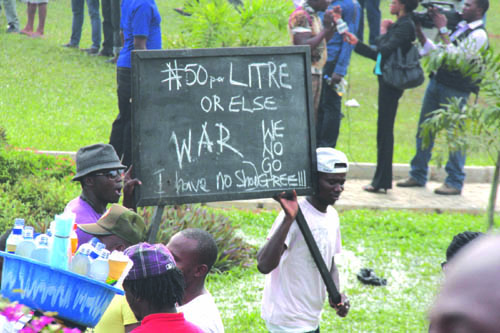 #50 per LITRE
OR ELSE
WAR
WE
NO
GO
GREE!!!
I have no Shoe